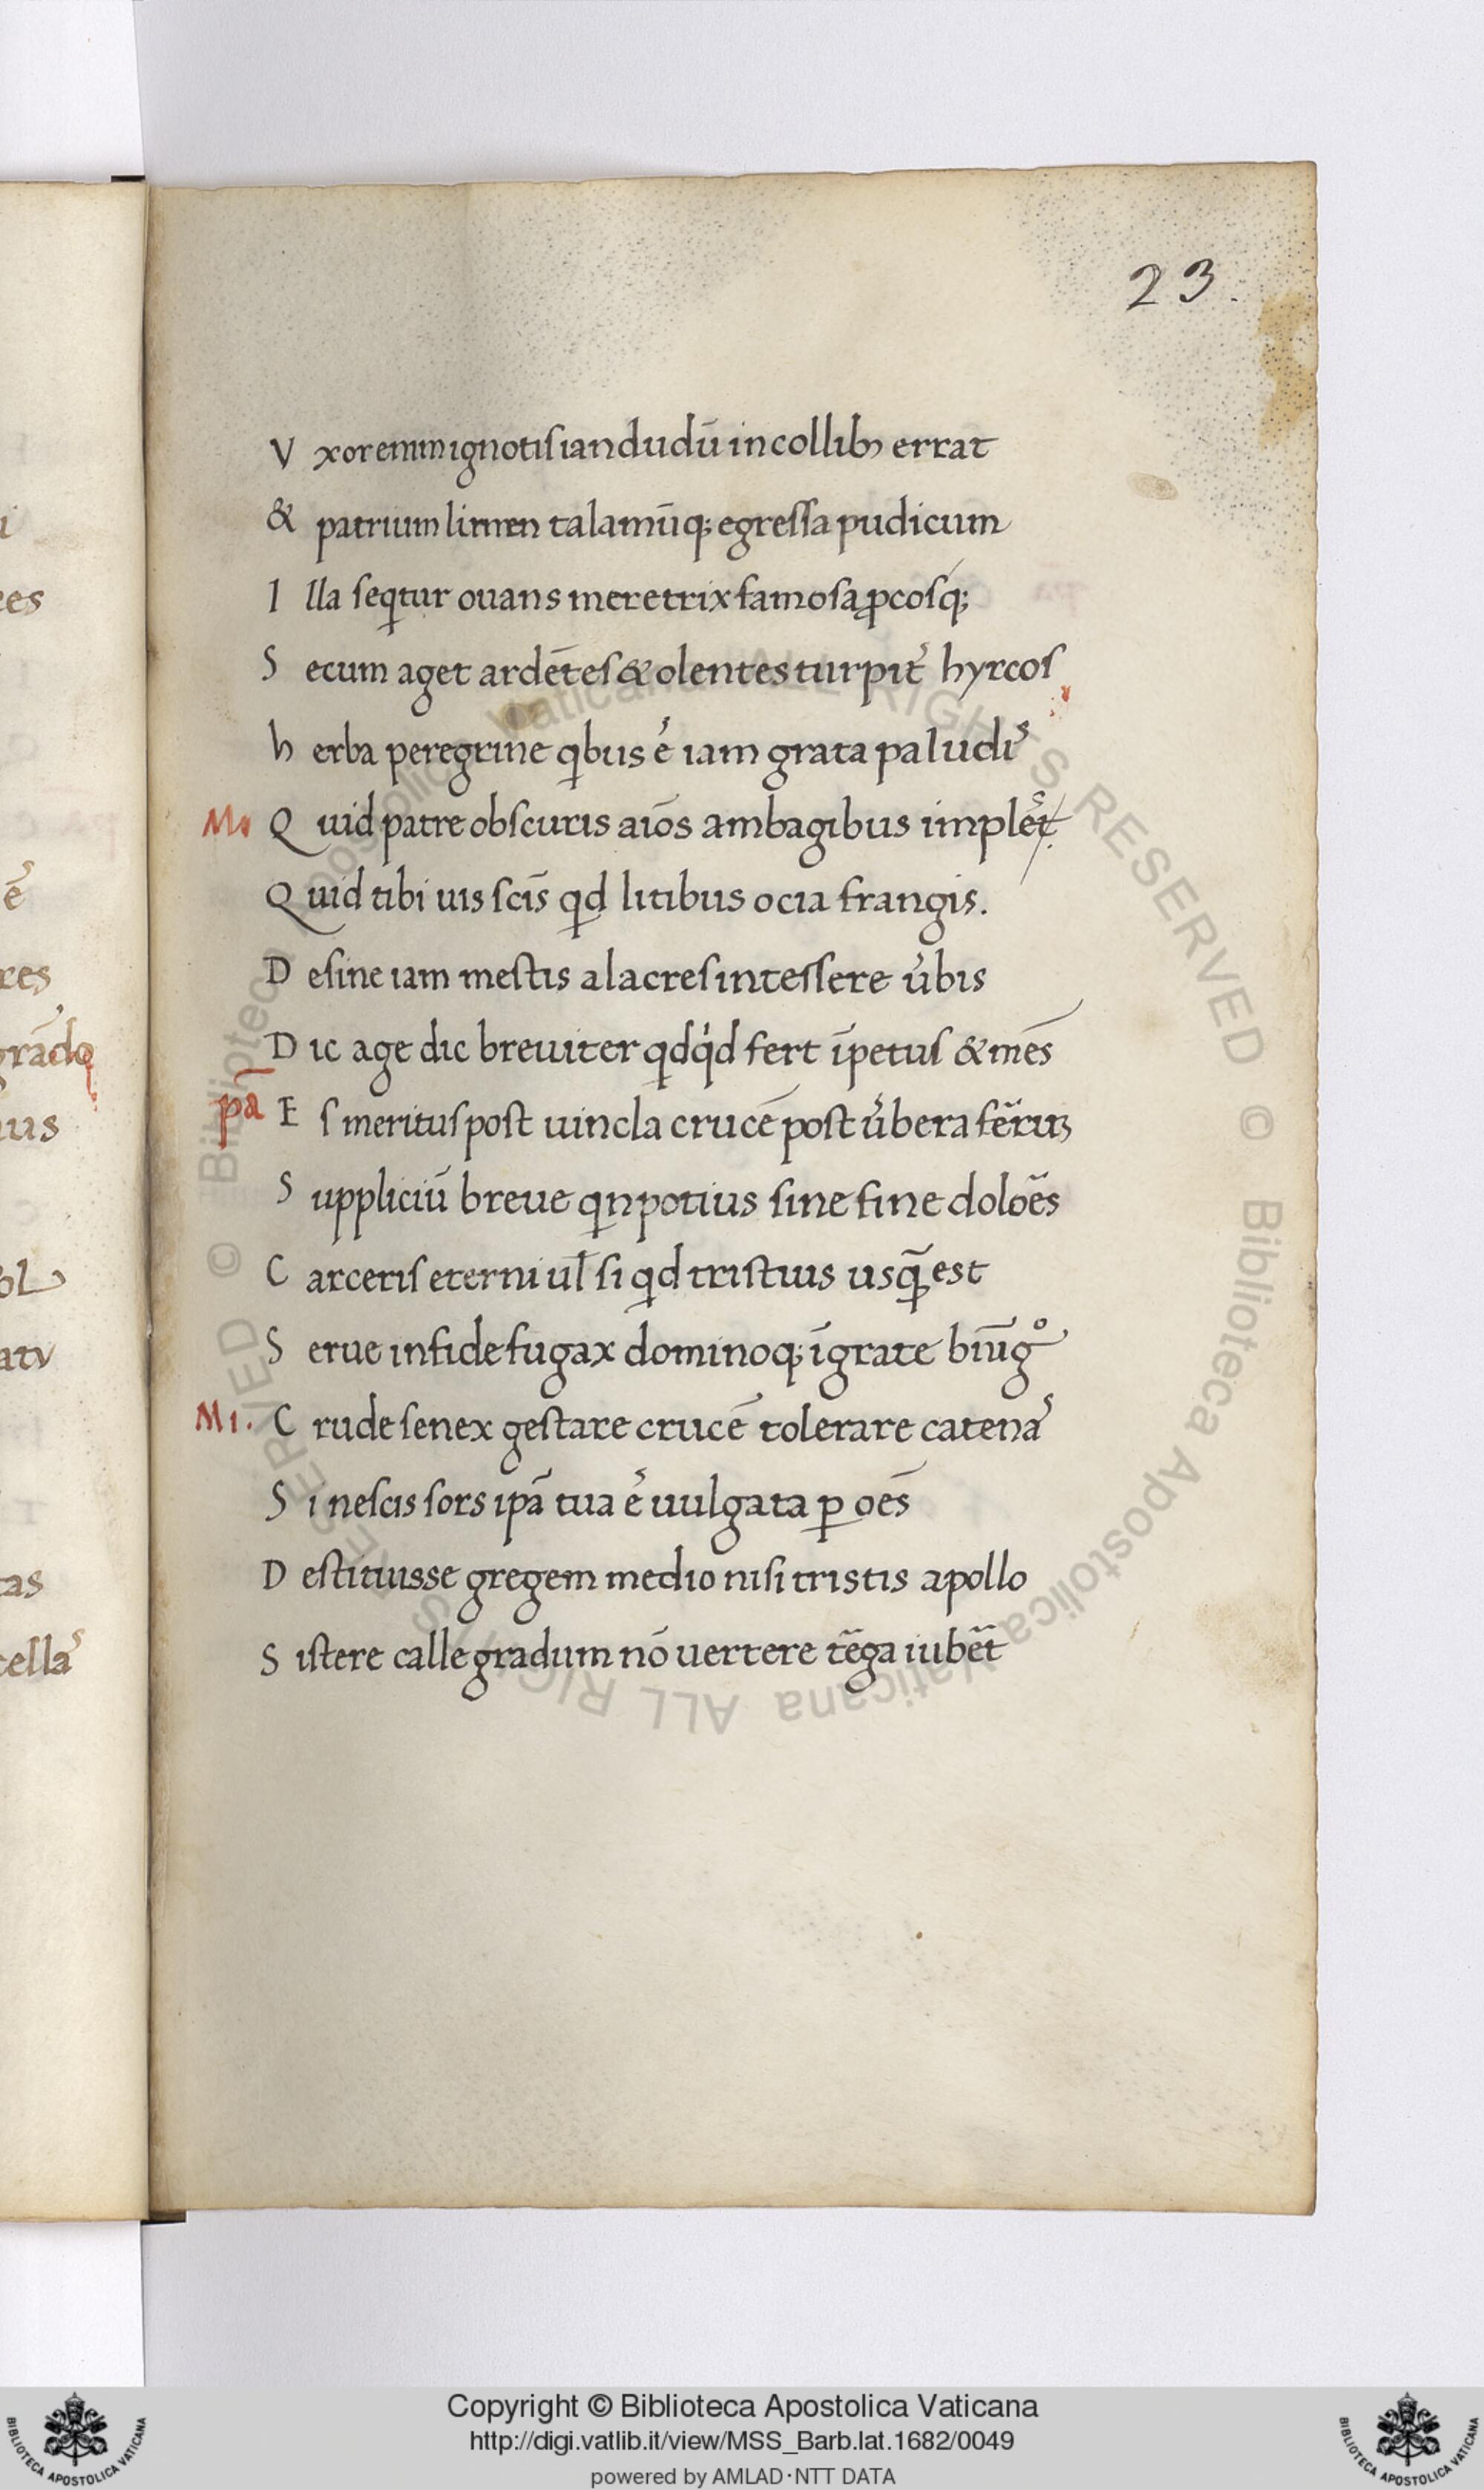 23.
V xorem in ignotis iandudū in collibꝫ errat
& patrium limen talamūq; egressa pudicum
I lla seqtur ouans meretrix famosa ꝓcosq;
S ecum aget ardētes & olentes turpit hyrcos
h erba peregrine qbus ē iam grata paludis
Mi Q uid patre obscuris aīos ambagibus implet
Q uid tibi uis scīs qd litibus ocia frangis.
D esine iam mestis alacres intessere ubis
D ic age dic breuiter qdqd fert īpetus & mēs
pā E s meritus post uincla crucē post ubera ferꝝ
S uppliciū breue qn potius sine fine doloēs
C arceris eterni ul̄ si qd tristius usꝗ̄ est
S erue infide fugax dominoq; īgrate biūgo
Mi. C rude senex gestare crucē tolerare catenas
S i nescis sors ipā tua ē uulgata ꝑ oēs
D estituisse gregem medio nisi tristis apollo
S istere calle gradum nō uertere tēga iubēt
i
res
ē
res
grādo
us
ol
atv
tas
cella
Copyright © Biblioteca Apostolica Vaticana
http://digi.vatlib.it/view/MSS_Barb.lat.1682/0049
powered by AMLAD·NTT DATA
BIBLIOTECA APOSTOLICA VATICANA
BIBLIOTECA APOSTOLICA VATICANA
© Biblioteca Apostolica Vaticana ALL RIGHTS RESERVED © Biblioteca Apostolica Vaticana ALL RIGHTS RESERVED